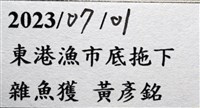 2023/07/01
東港漁市底拖下
雜魚獲 黃彥銘